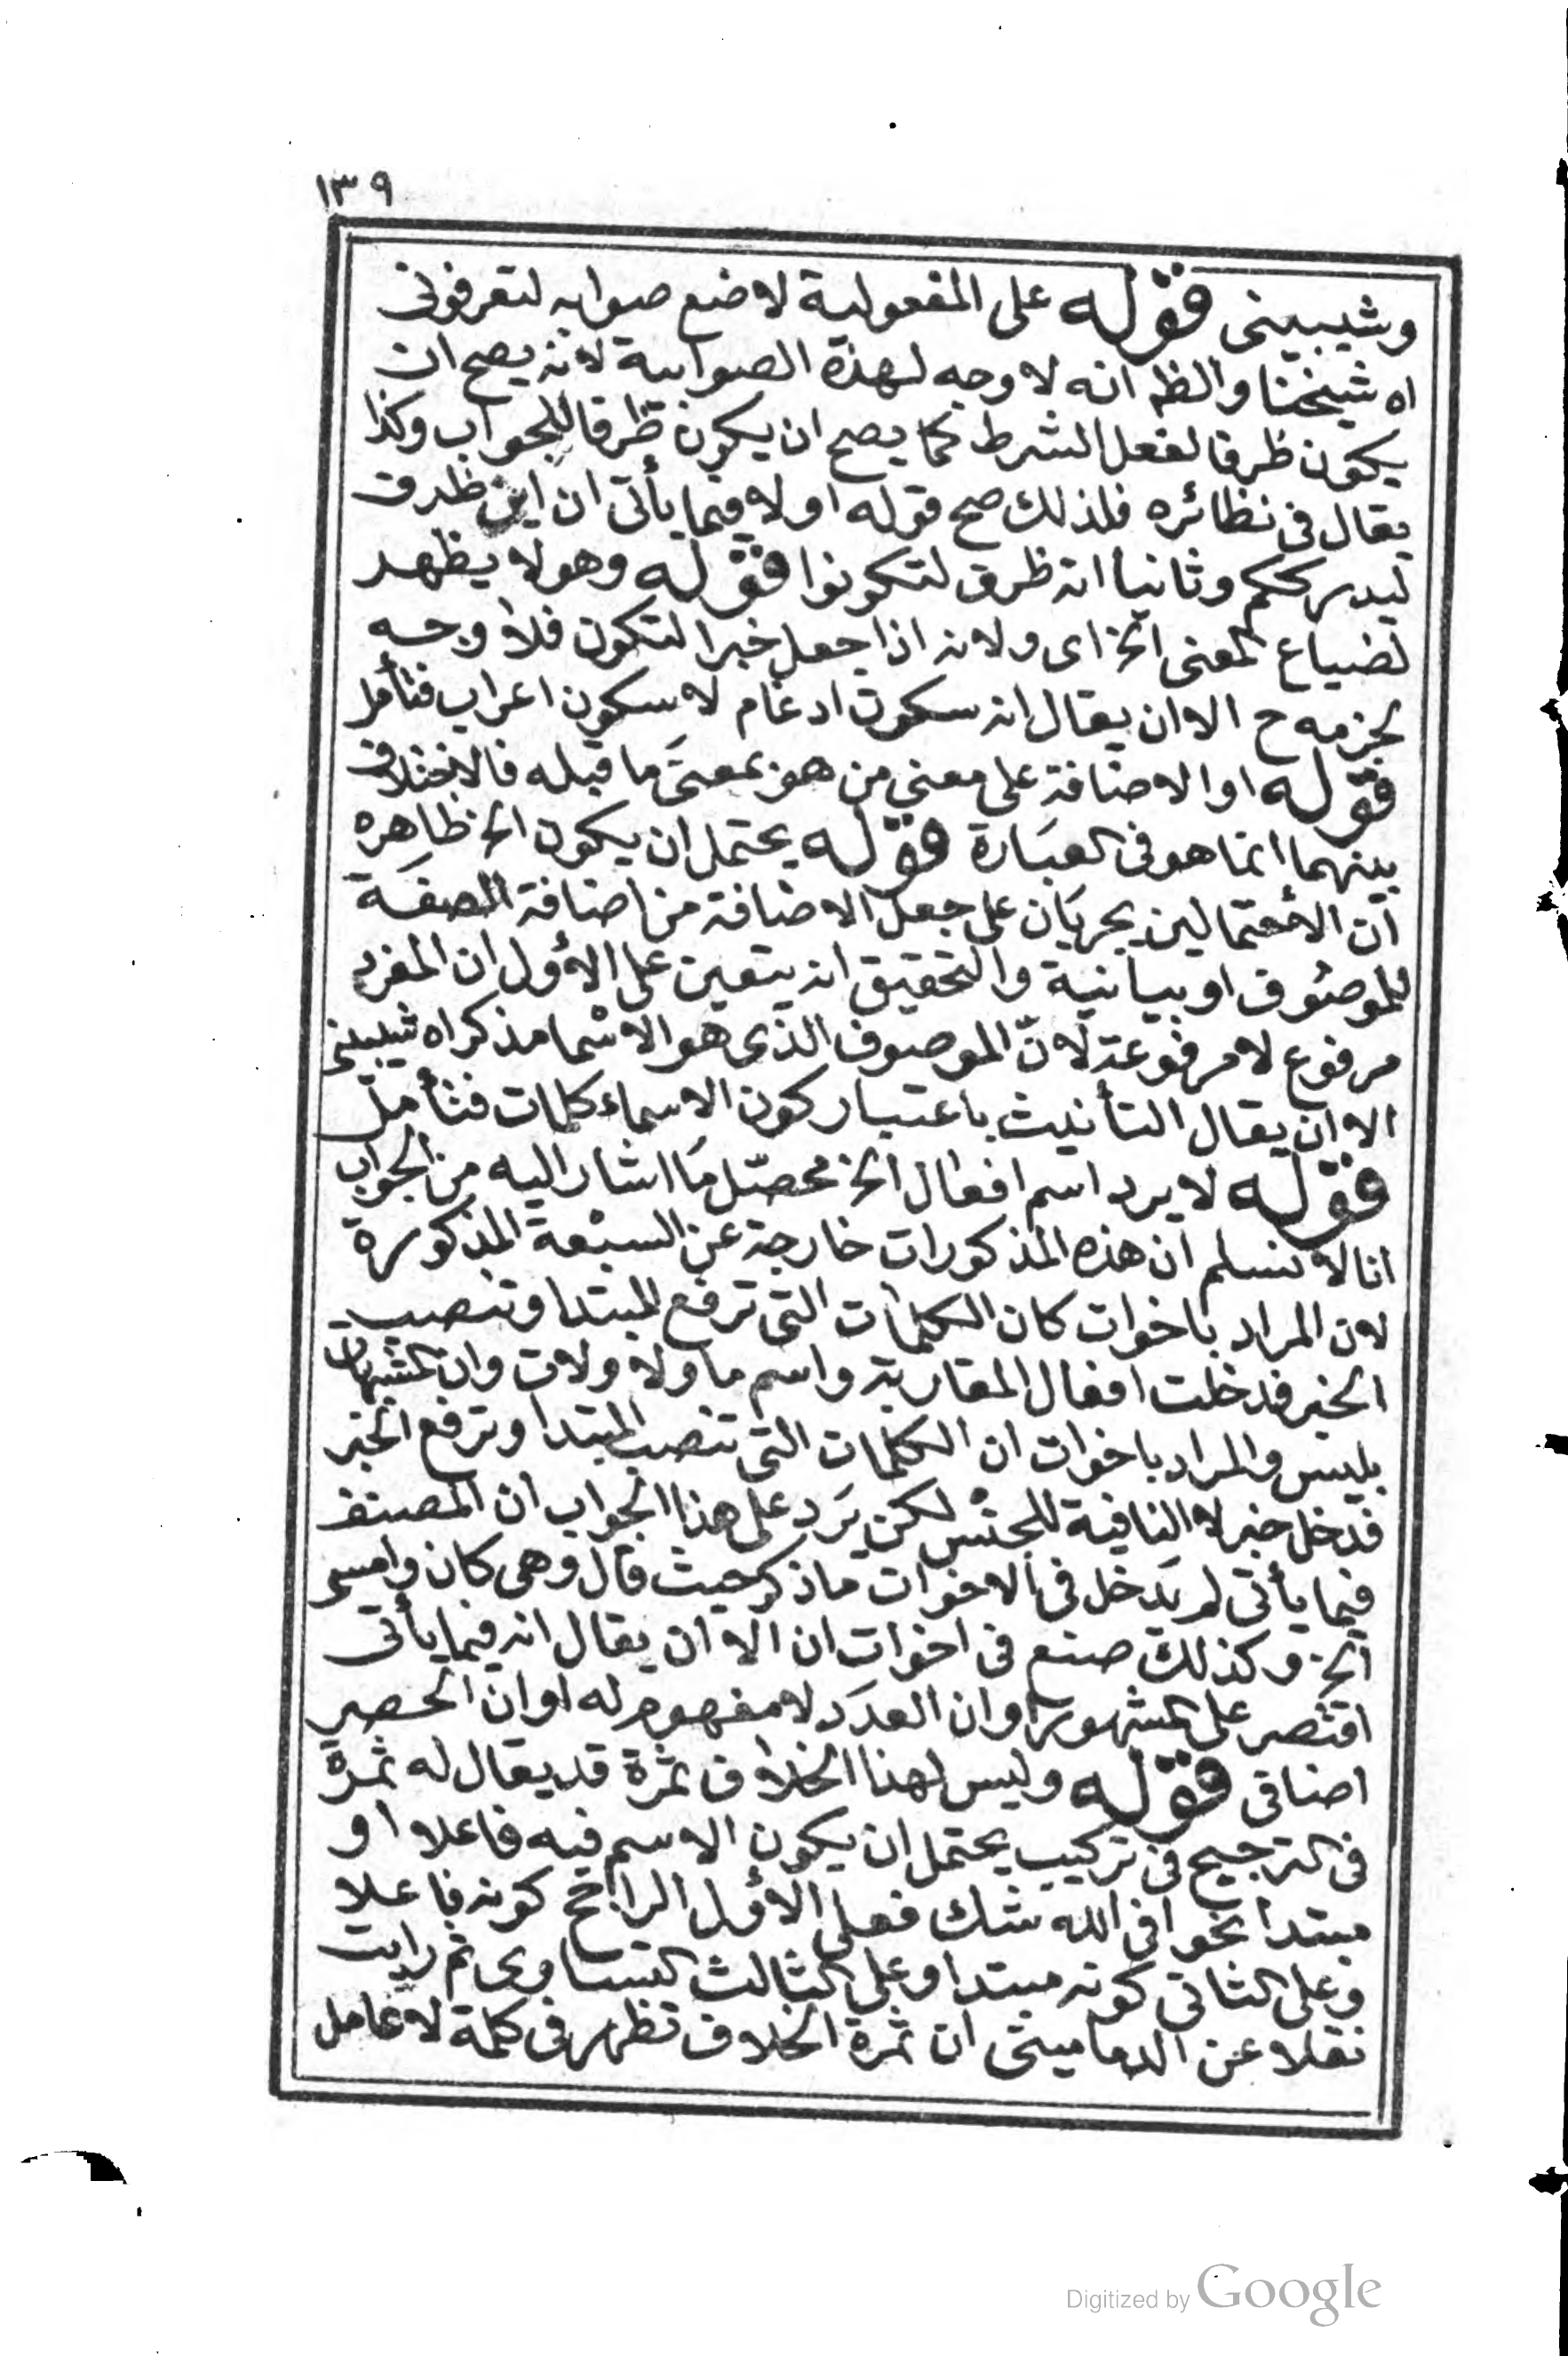 ١٣٩
وشيبينى قوله على المفعولية لاضع صوابه لتعرفونى
اه شيخنا والظ انه لا وجه لهذة الصوابية لانه يصح ان
يكون ظرفا لفعل الشرط كما يصح ان يكون ظرفا للجواب وكذا
يقال فى نظائره فلذلك صح قوله اولا فيما يأتى ان اين ظرف
ليدرككم وثانيا انه ظرف لتكونوا قوله وهو لا يظهر
لضياع المعنى الخ اى ولانه اذا جعل خبرا لتكون فلا وجه
لجزمه ح الا ان يقال انه سكون ادغام لا سكون اعراب فتأمل
قوله او الاضافة على معنى من هو بمعنى ما قبله فالاختلاف
بينهما انما هو فى العبارة قوله يحتمل ان يكون الخ ظاهره
ان الاحتمالين يجريان على جعل الاضافة من اضافة الصفة
للموصوف او بيانية والتحقيق انه يتعين على الاول ان المفرد
مرفوع لا مرفوعة لان الموصوف الذى هو الاسما مذكر اه شيبينى
الا ان يقال التأنيث باعتبار كون الاسماء كلمات فتأمل
قوله لا يرد اسم افعال الخ محصّل ما اشار اليه من الجواب
انا لا نسلم ان هذه المذكورات خارجة عن السبعة المذكورة
لان المراد باخوات كان الكلمات التى ترفع المبتدا وتنصب
الخبر فدخلت افعال المقاربة واسم ما ولا ولات وان المشبهات
بليس والمراد باخوات ان الكلمات التى تنصب المبتدا وترفع الخبر
فدخل خبر لا النافية للجنس لكن يرد على هذا الجواب ان المصنف
فيما يأتى لم يدخل فى الاخوات ما ذكر حيث قال وهى كان وامسى
الخ وكذلك صنع فى اخوات ان الا ان يقال انه فيما يأتى
اقتصر على المشهور او ان العدد لا مفهوم له او ان الحصر
اضافى قوله وليس لهذا الخلاف ثمرة قد يقال له ثمرة
فى الترجيح فى تركيب يحتمل ان يكون الاسم فيه فاعلا او
مبتدأ نحو افى الله شك فعلى الاول الراجح كونه فاعلا
وعلى الثانى كونه مبتدا وعلى الثالث التساوى ثم رايت
نقلا عن الدمامينى ان ثمرة الخلاف تظهر فى كلمة لا عامل
Digitized by Google